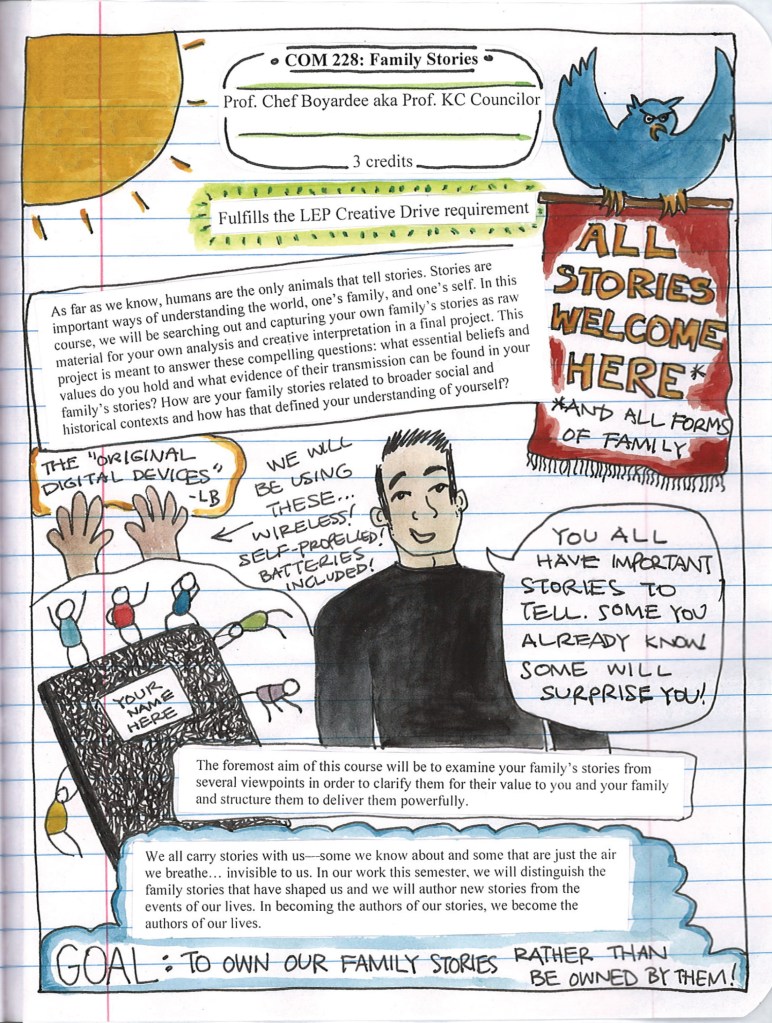 COM 228: Family Stories
Prof. Chef Boyardee aka Prof. KC Councilor
3 credits
Fulfills the LEP Creative Drive requirement
ALL
STORIES
WELCOME
HERE*
*AND ALL FORMS
OF FAMILY
As far as we know, humans are the only animals that tell stories. Stories are
important ways of understanding the world, one's family, and one's self. In this
course, we will be searching out and capturing your own family's stories as raw
material for your own analysis and creative interpretation in a final project. This
project is meant to answer these compelling questions: what essential beliefs and
values do you hold and what evidence of their transmission can be found in your
family's stories? How are your family stories related to broader social and
historical contexts and how has that defined your understanding of yourself?
THE "ORIGINAL
DIGITAL DEVICES"
-LB
WE WILL
BE USING
THESE...
WIRELESS!
SELF-PROPELLED!
BATTERIES
INCLUDED!
YOU ALL
HAVE IMPORTANT
STORIES TO
TELL. SOME YOU
ALREADY KNOW
SOME WILL
SURPRISE YOU!
YOUR
NAME
HERE
The foremost aim of this course will be to examine your family's stories from
several viewpoints in order to clarify them for their value to you and your family
and structure them to deliver them powerfully.
We all carry stories with us—some we know about and some that are just the air
we breathe… invisible to us. In our work this semester, we will distinguish the
family stories that have shaped us and we will author new stories from the
events of our lives. In becoming the authors of our stories, we become the
authors of our lives.
GOAL: TO OWN OUR FAMILY STORIES RATHER THAN
BE OWNED BY THEM!